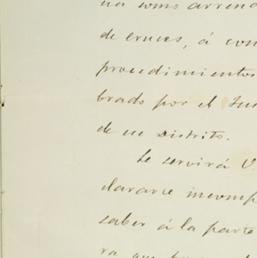 na como arrend
de cruces, á con
procedimientos
brado por el Juz
de ese Distrito.
Se servirá V.
clararse incomp
saber á la parte
ra que